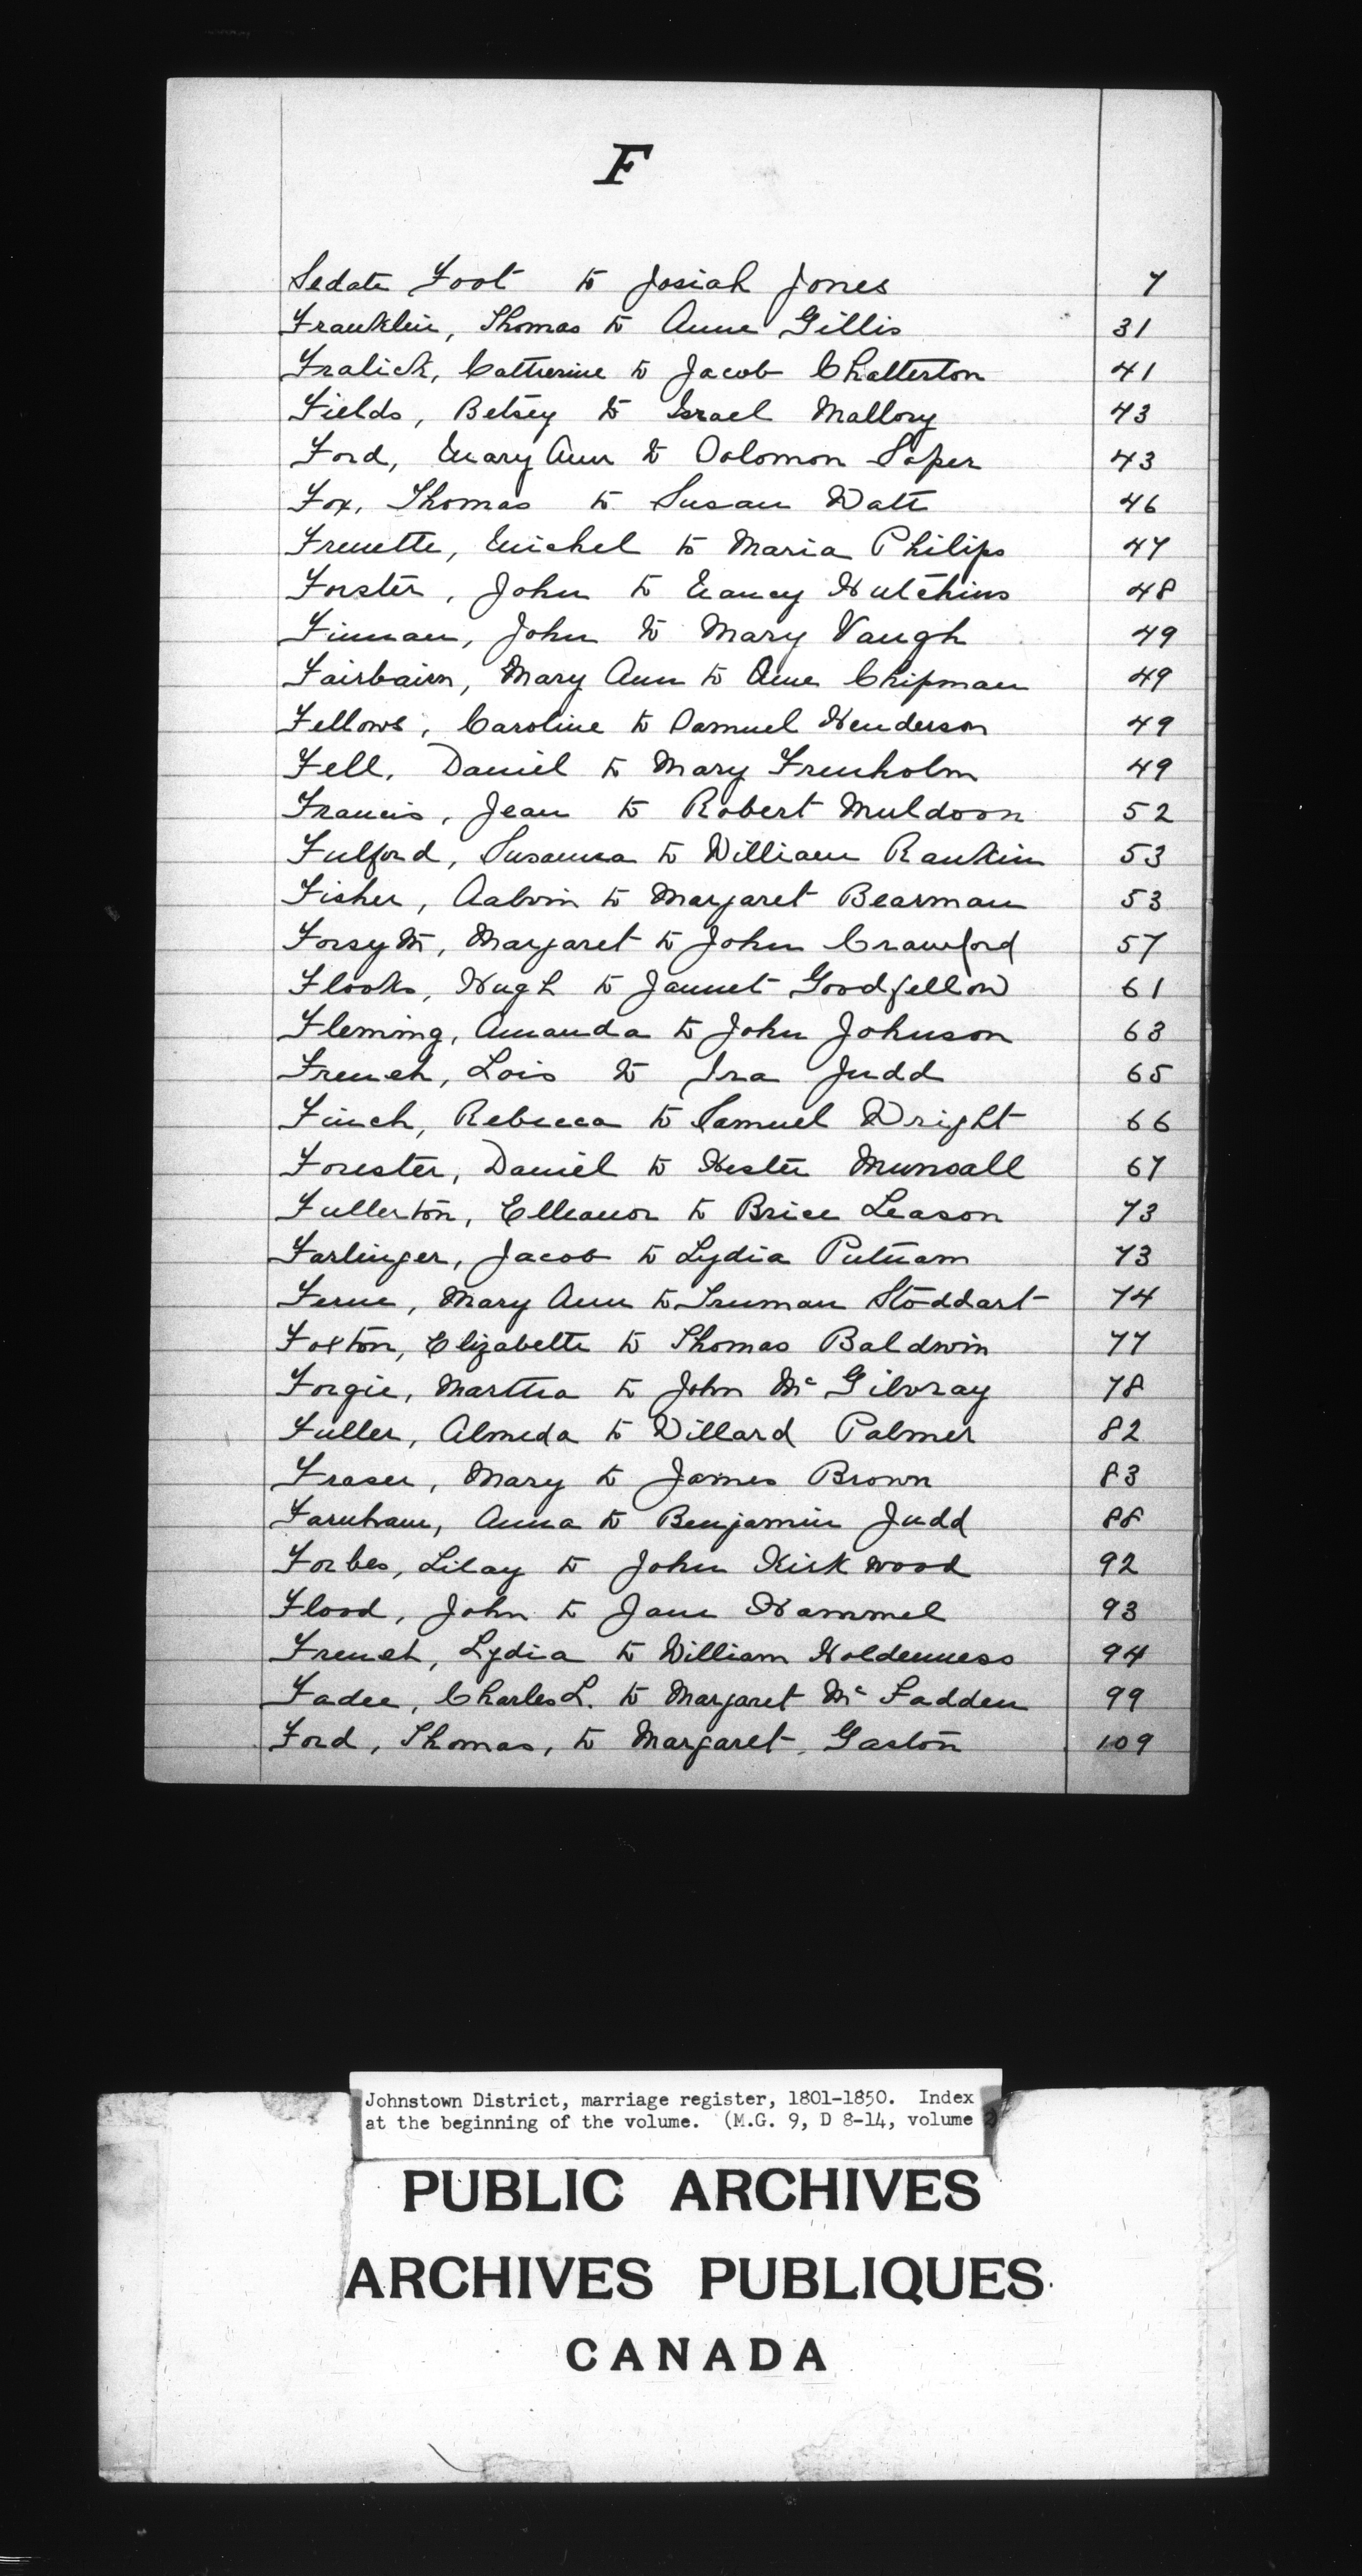 F
Sedate Foot to Josiah Jones 7
Franklin, Thomas to Anne Gillis 31
Fralick, Catherine to Jacob Chatterton 41
Fields, Betsey to Israel Mallory 43
Ford, Mary Ann to Solomon Soper 43
Fox, Thomas to Susan Watt 46
Frenette, Michel to Maria Philips 47
Forster, John to Nancy Hutchins 48
Finnan, John to Mary Vaugh 49
Fairbairn, Mary Ann to Chipman 49
Fellows, Caroline to Samuel Henderson 49
Fell, Daniel to Mary Frenholm 49
Francis, Jean to Robert Muldoon 52
Fulford, Susanna to William Rankin 53
Fisher, Aalvin to Margaret Bearman 53
Forsyth, Margaret to John Crawford 57
Flooks, Hugh to Jannet Goodfellow 61
Fleming, Amanda to John Johnson 63
French, Lois to Ira Judd 65
Finch, Rebecca to Samuel Wright 66
Forester, Daniel to Hester Munsall 67
Fullerton, Elleanor to Brice Leason 73
Farlinger, Jacob to Lydia Putnam 73
Ferne, Mary Ann to Truman Stoddart 74
Foxton, Elizabeth to Thomas Baldwin 77
Forgie, Martha to John Mc Gilvray 78
Fuller, Almeda to Willard Palmer 82
Fraser, Mary to James Brown 83
Farnham, Anna to Benjamin Judd 88
Forbes, Lilay to John Kirkwood 92
Flood, John to Jane Hammel 93
French, Lydia to William Holdenness 94
Fadee, Charles L. to Margaret Mc Fadden 99
Ford, Thomas, to Margaret Gaston 109
Johnstown District, marriage register, 1801-1850. Index
at the beginning of the volume. (M.G. 9, D 8-14, volume 2)
PUBLIC ARCHIVES
ARCHIVES PUBLIQUES
CANADA